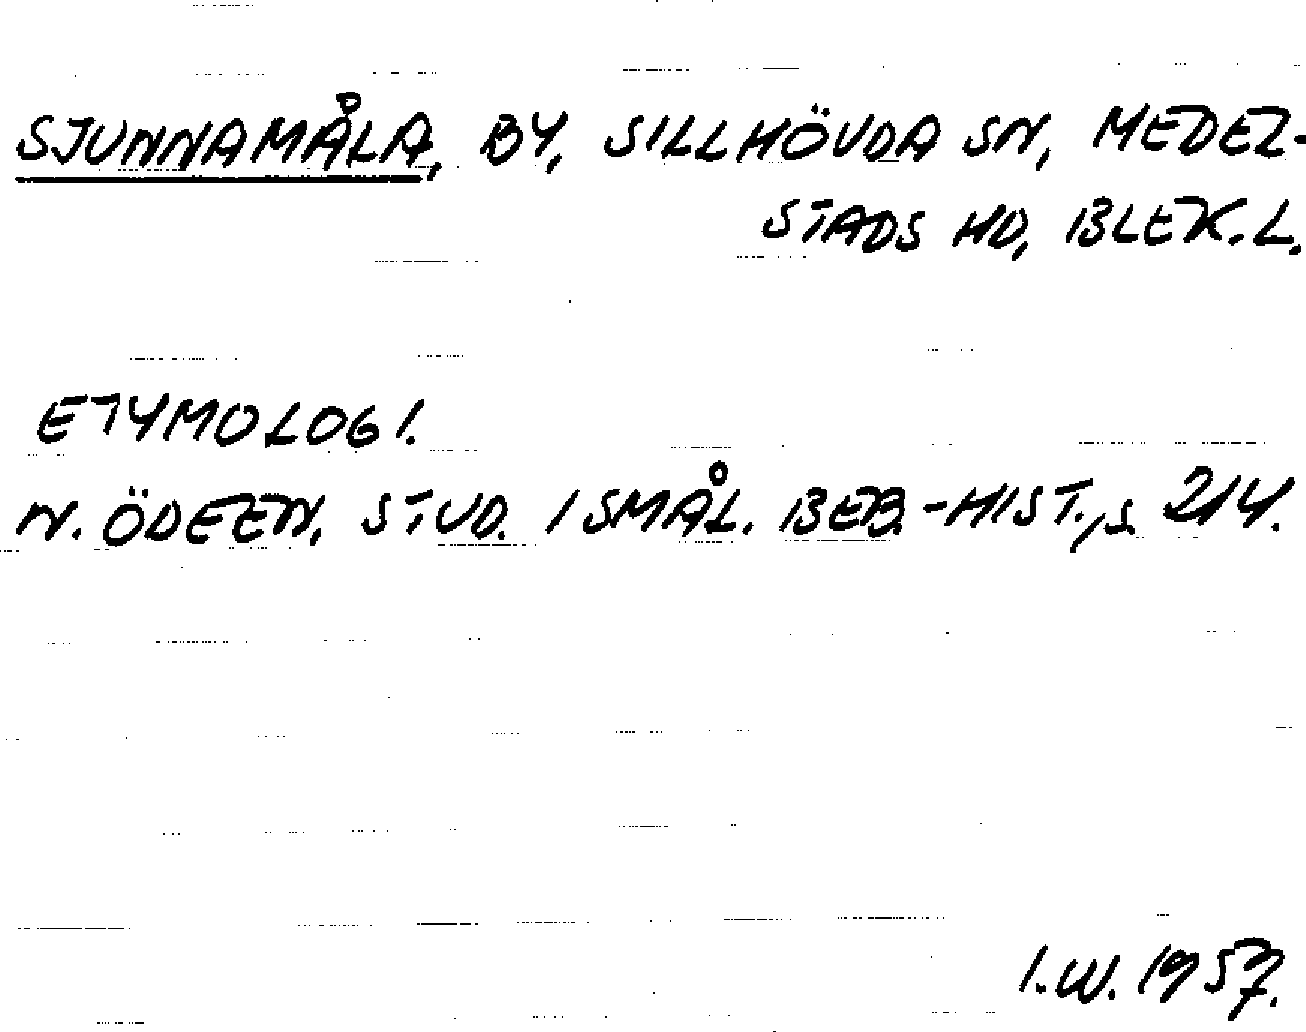 SJUNNAMÅLA, BY, SILLHÖVDA SN, MEDEL-
STADS HD, BLEK. L.
ETYMOLOGI.
N. ÖDEEN, STUD. I SMÅL. BEB.-HIST., s. 214.
I.W. 1957.